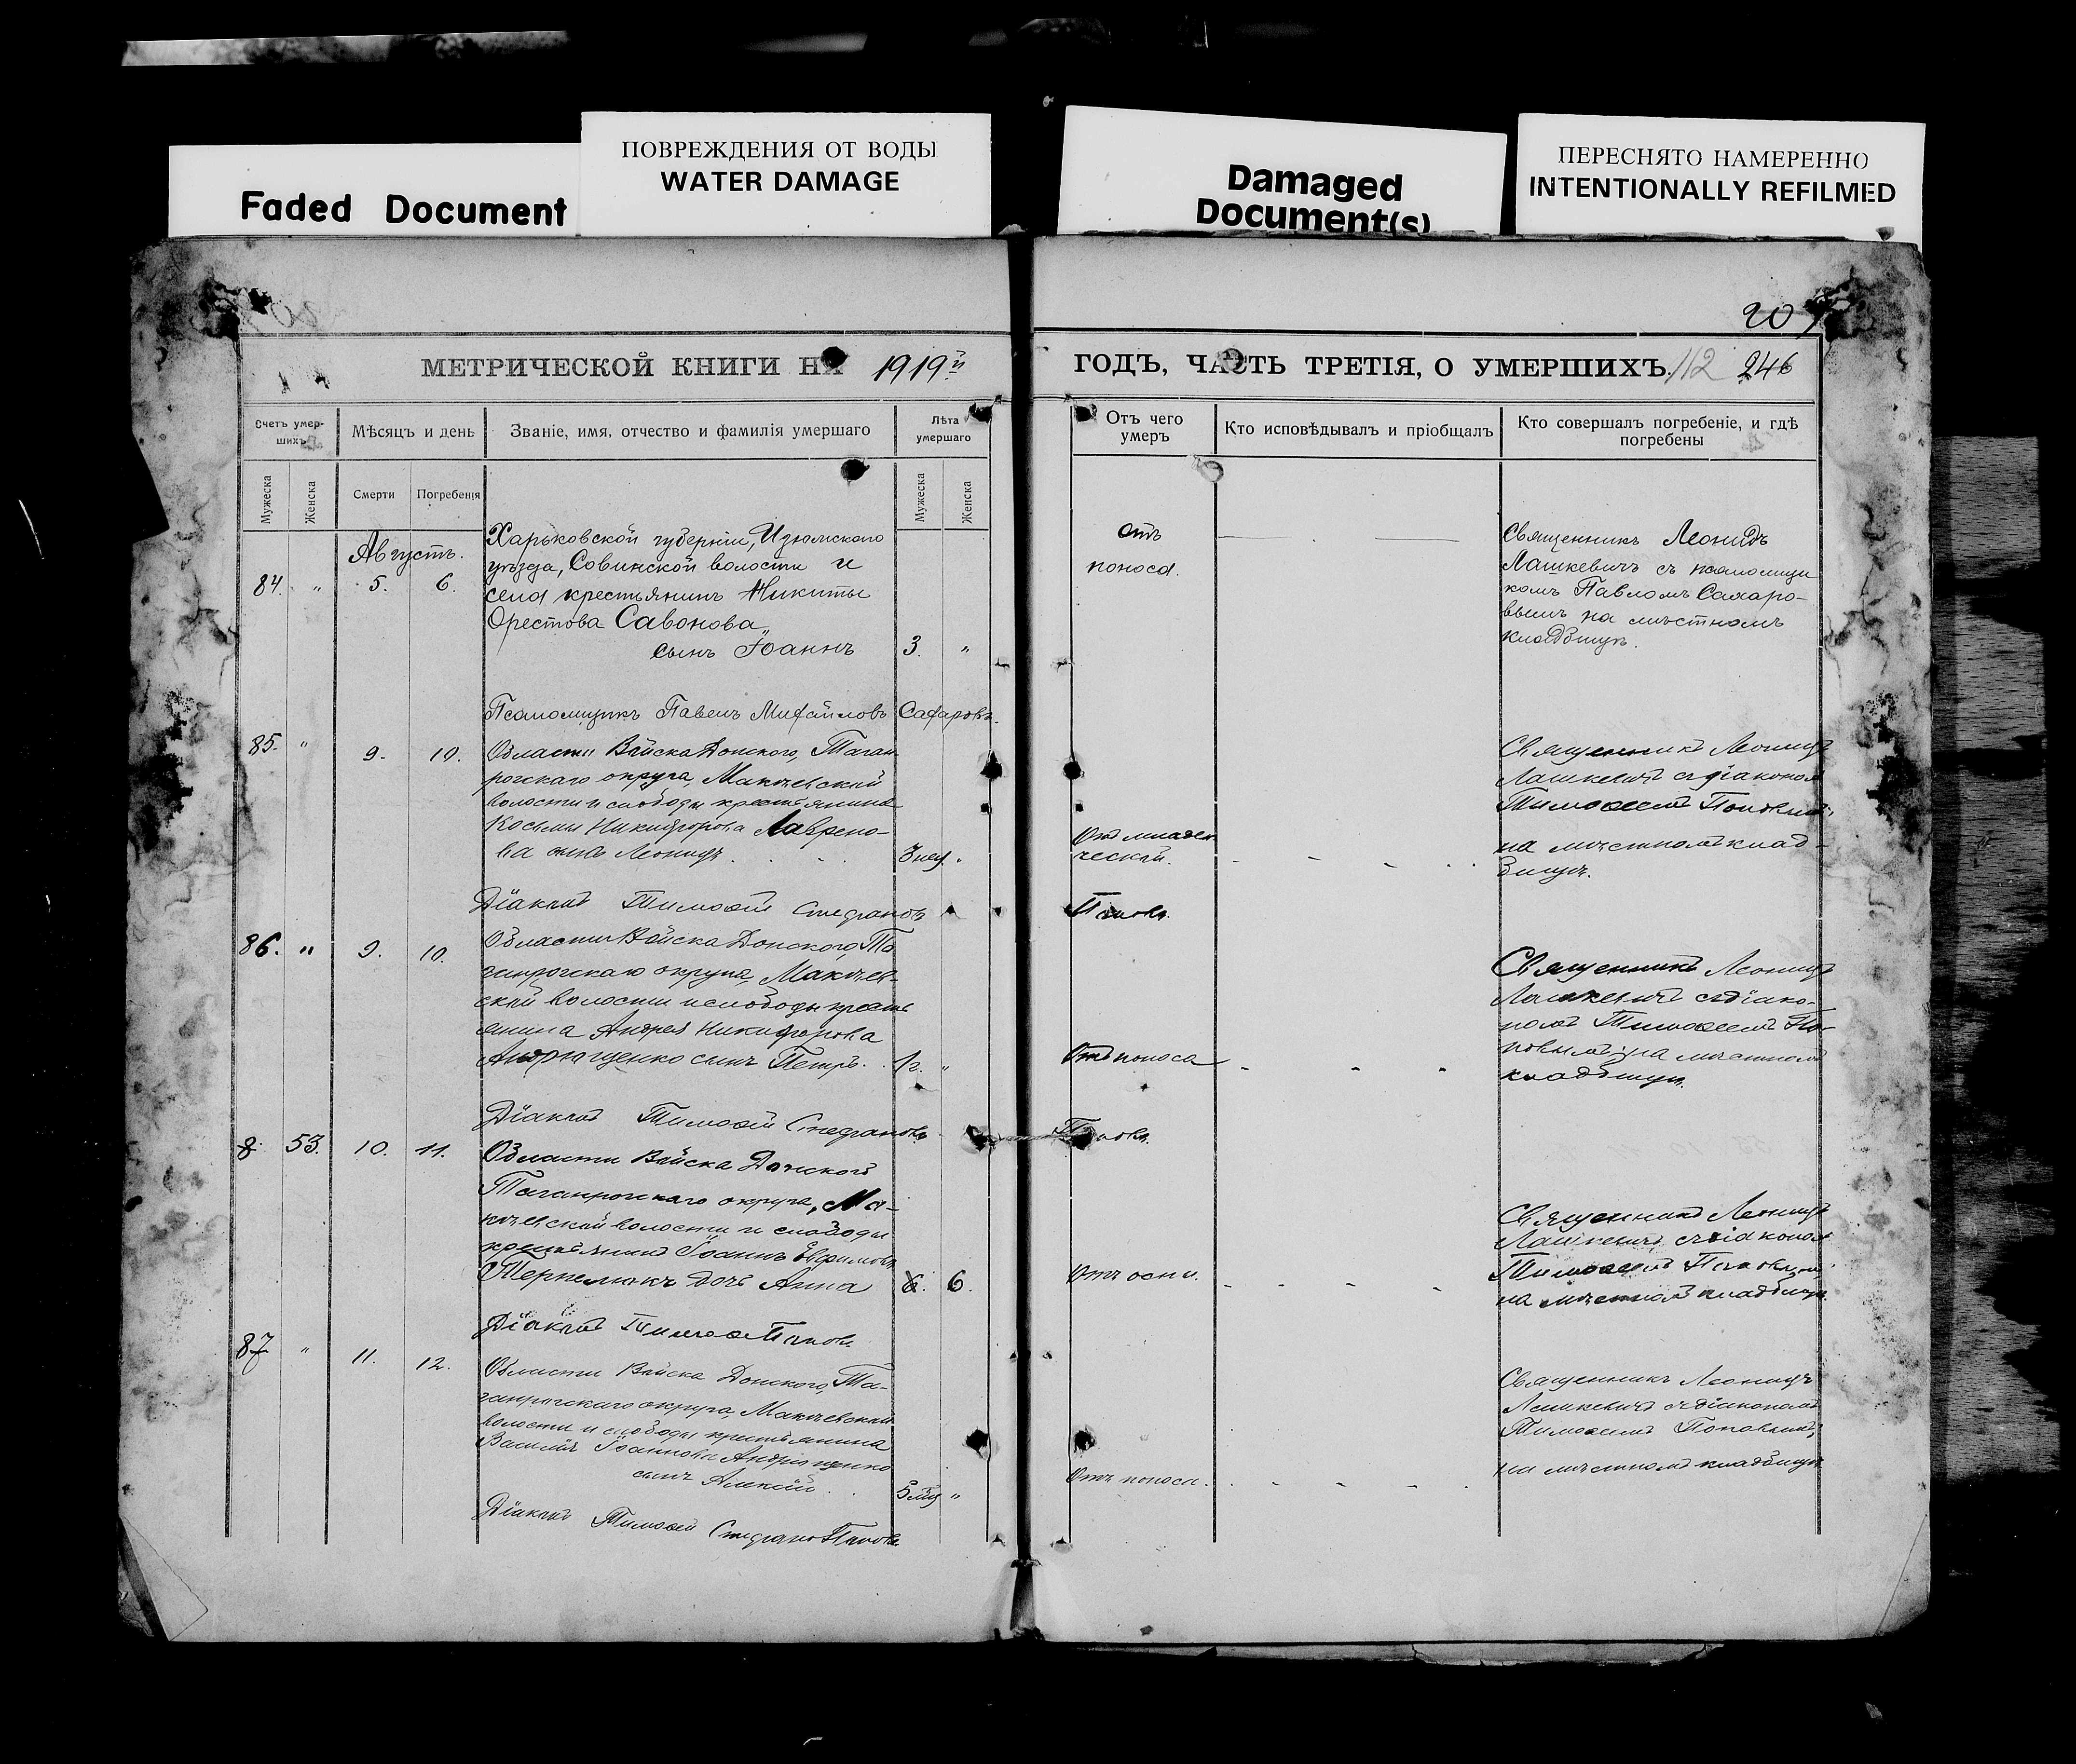 ПОВРЕЖДЕНИЯ ОТ ВОДЫ
WATER DAMAGE
Faded Document
Damaged
Document(s)
ПЕРЕСНЯТО НАМЕРЕННО
INTENTIONALLY REFILMED
207
МЕТРИЧЕСКОЙ КНИГИ НА 1919й
ГОДЪ, ЧАСТЬ ТРЕТІЯ, О УМЕРШИХЪ. 112 246
Счетъ умер-
шихъ
Мѣсяцъ и день
Званіе, имя, отчество и фамилія умершаго
Лѣта
умершаго
Отъ чего
умеръ
Кто исповѣдывалъ и пріобщалъ
Кто совершалъ погребеніе, и гдѣ
погребены
Мужеска
Женска
Смерти
Погребенія
Мужеска
Женска
Августъ.
84. " 5. 6.
Харьковской губерніи, Изюмскаго
уѣзда, Совинской волости и
села крестьянинъ Никиты
Орестова Савонова
сынъ Іоаннъ 3. "
отъ
поноса.
Священникъ Леонидъ
Лашкевичъ съ псаломщи
комъ Павломъ Сахаро-
вымъ на мѣстномъ
кладбищѣ.
Псаломщикъ Павелъ Михайловъ Сахаровъ.
85. " 9. 10.
Области Войска Донского, Таган
рогскаго округа, Макѣевской
волости и слободы крестьянина
Косьмы Никифорова Лаврено-
ва сынъ Леонидъ. 3 нед. "
Отъ младен
ческой.
Священникъ Леонидъ
Лашкевичъ съ діакономъ
Тимофеемъ Поповымъ,
на мѣстномъ клад-
бищѣ.
Діаконъ Тимофей Стефановъ Поповъ.
86. " 9. 10.
Области Войска Донского, Та
ганрогскаго округа, Макѣев-
ской волости и слободы кресть
янина Андрея Никифорова
Андрющенко сынъ Петръ. 1 г. "
Отъ поноса
Священникъ Леонидъ
Лашкевичъ съ діако-
номъ Тимофеемъ По-
повымъ, на мѣстномъ
кладбищѣ.
Діаконъ Тимофей Стефановъ Поповъ.
8 53. 10. 11.
Области Войска Донской
Таганрогскаго округа, Ма-
кѣевской волости и слободы
крестьянинъ Іоаннъ Евфимовъ
дочь Анна 6. 6.
Отъ оспи.
Священникъ Леонидъ
Лашкевичъ, съ діаконом
Тимофеемъ Поповымъ,
на мѣстномъ кладбищѣ.
Діаконъ Тимофей Поповъ
87 " 11. 12.
Области Войска Донского, Та-
ганрогскаго округа, Макѣевской
волости и слободы крестьянина
Василія Іоаннова Андрющенко
сынъ Алексій. 5 мѣс "
Отъ поноса.
Священникъ Леонидъ
Лашкевичъ съ діакономъ
Тимофеемъ Поповымъ,
на мѣстномъ кладбищѣ
Діаконъ Тимофей Стефановъ Поповъ.